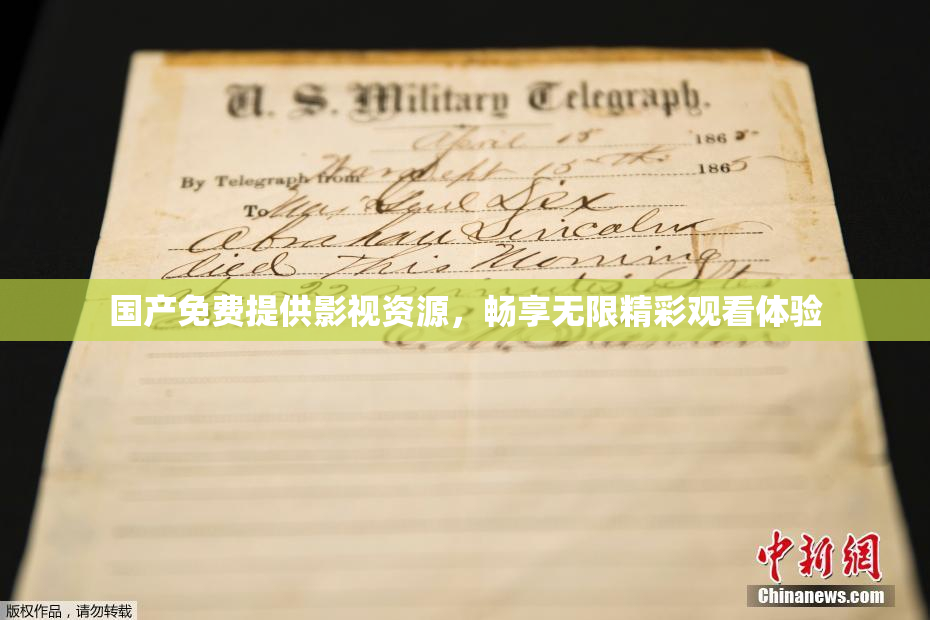 U. S. Military Telegraph.
April 15 1865
By Telegraph from War Dept 15th 1865
To Maj Genl Dix
Abraham Lincoln
died this morning
at 22 minutes after
国产免费提供影视资源，畅享无限精彩观看体验
E. M. Stanton
中新网
Chinanews.com
版权作品，请勿转载